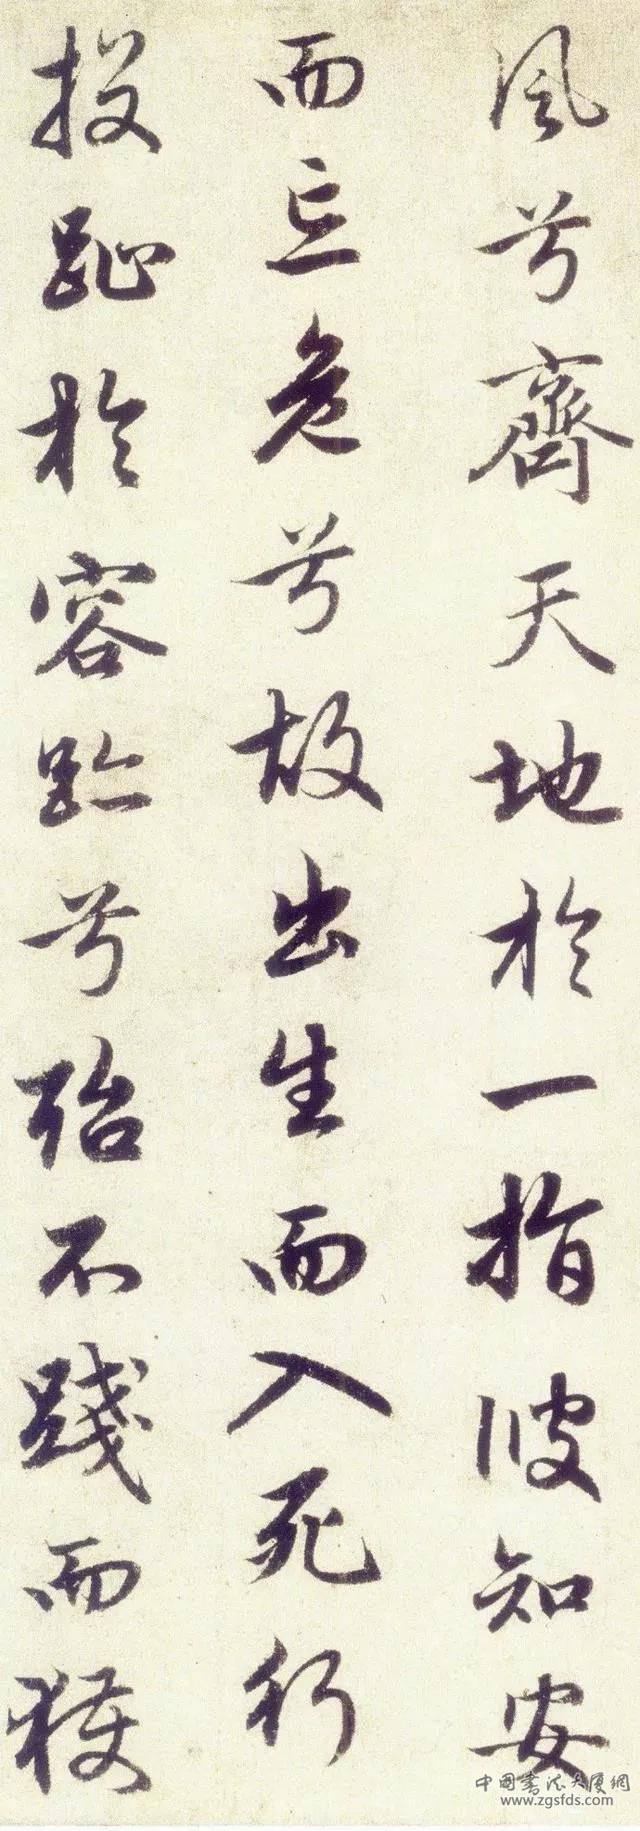 風兮齊天地於一指彼知安
而忘危兮故出生而入死行
投趾於容跡兮殆不踐而獲
中國書法大厦網
www.zgsfds.com